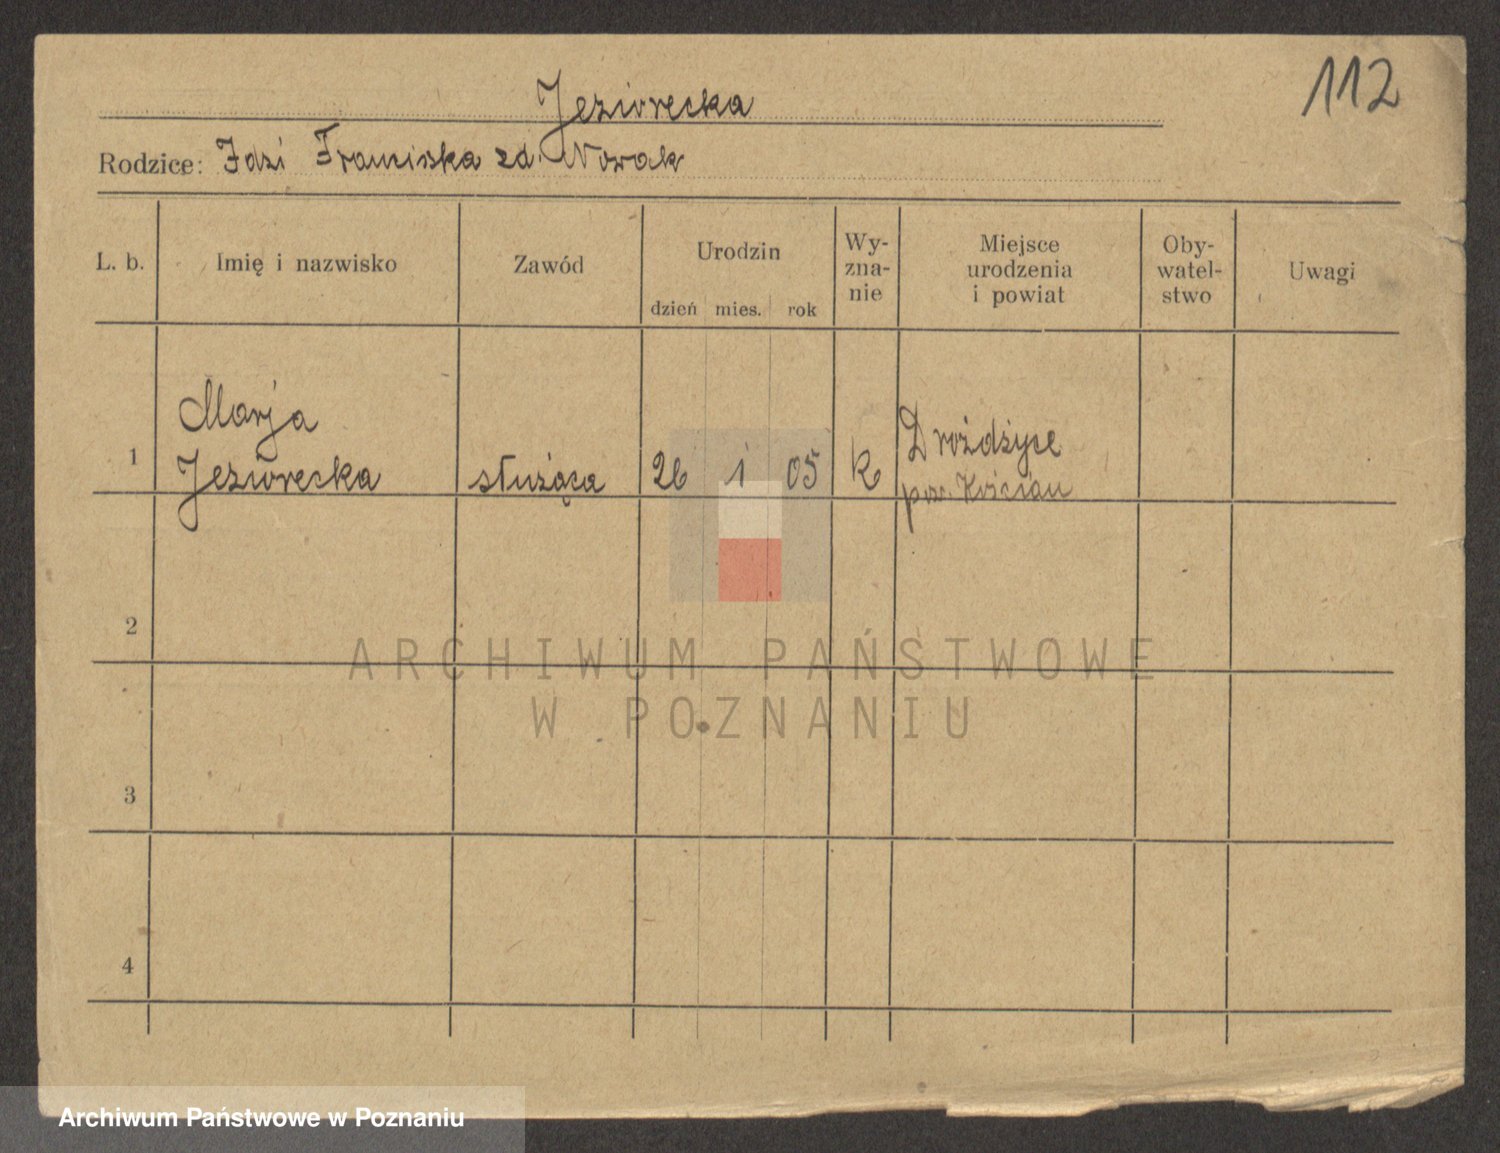 112
Jeziorecka
Rodzice: Idzi Franciszka zd. Nowak
L. b. Imię i nazwisko Zawód Urodzin Wy-zna-nie Miejsce urodzenia i powiat Oby-watel-stwo Uwagi
dzień mies. rok
Marja Drożdżyce
1 Jeziorecka służąca 26 1 05 k pow. Kościan
2
ARCHIWUM PAŃSTWOWE
W POZNANIU
3
4
Archiwum Państwowe w Poznaniu